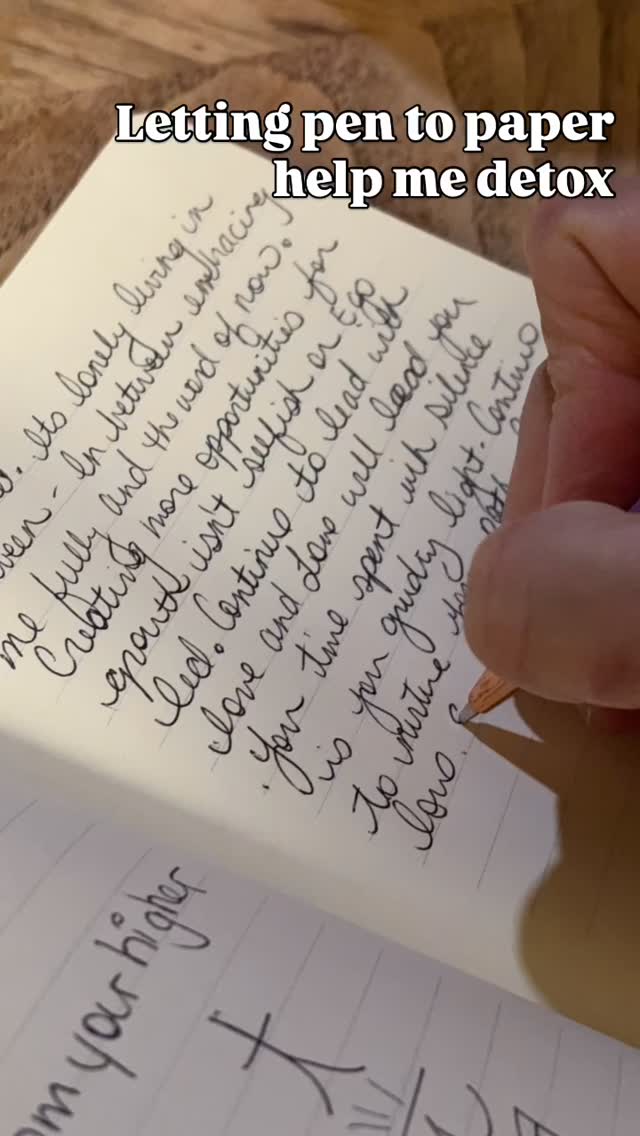 Letting pen to paper
help me detox
. Its lonely living in
ween - In between embracing
me fully and the word of now.
Creating more opportunities for
growth isn't selfish or EGO
led. Continue to lead with
love and Love will lead you
. Your time spent with silence
is your guiding light. Continue
to nurture
love.
om your higher